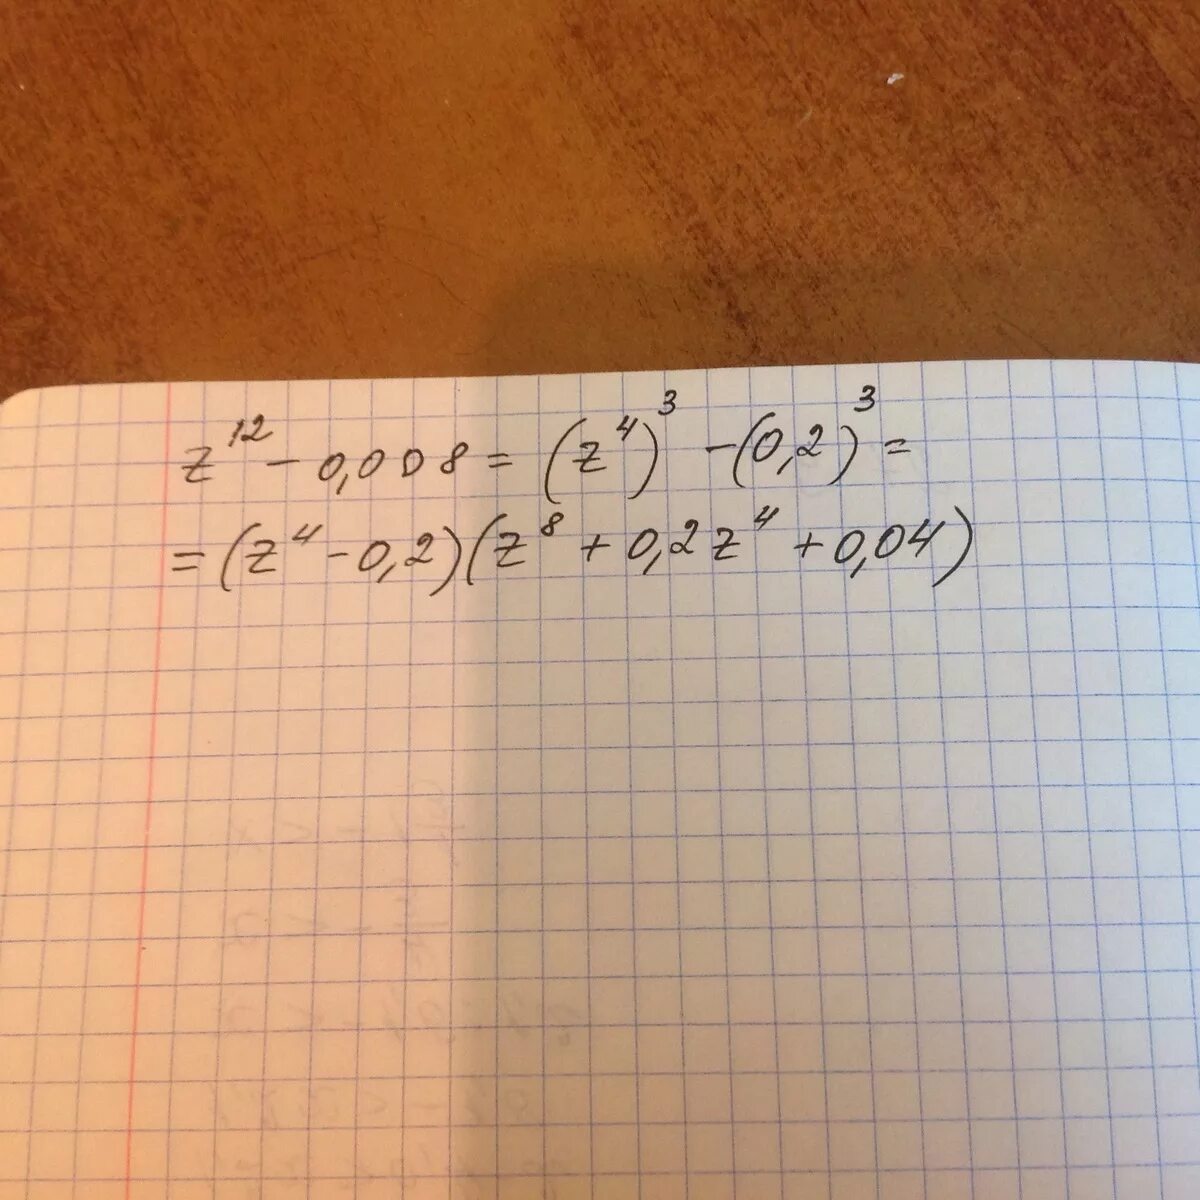 z¹² - 0,008 = (z⁴)³ - (0,2)³ =
= (z⁴ - 0,2)(z⁸ + 0,2z⁴ + 0,04)